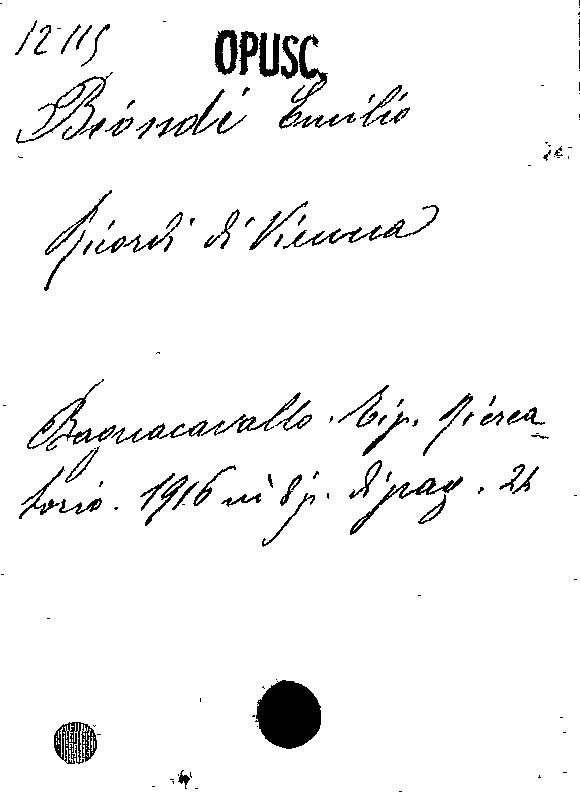 12115
OPUSC.
Biondi Emilio
Ricordi di Vienna
Bagnacavallo. Tip. Ricrea=
torio. 1916 in 8 p. di pag. 24